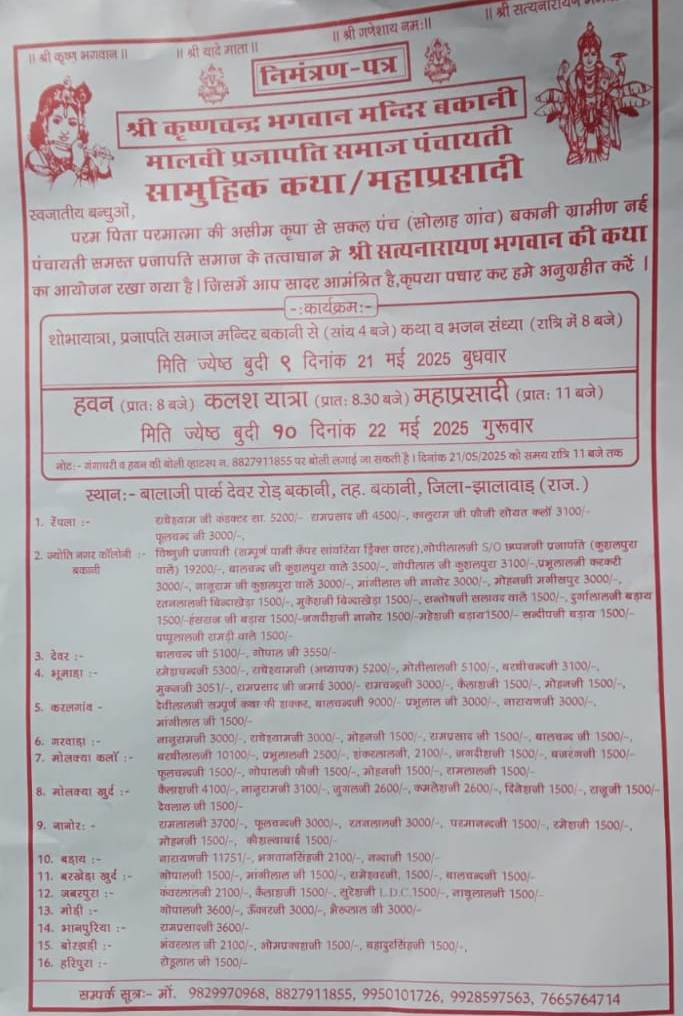 || श्री कृष्ण भगवान ||
|| श्री यादे माता ||
|| श्री गणेशाय नमः ||
|| श्री सत्यनारायण
निमंत्रण-पत्र
श्री कृष्णचन्द्र भगवान मन्दिर बकानी
मालवी प्रजापति समाज पंचायती
सामुहिक कथा/महाप्रसादी
स्वजातीय बन्धुओं,
परम पिता परमात्मा की असीम कृपा से सकल पंच (सोलाह गांव) बकानी ग्रामीण नई
पंचायती समस्त प्रजापति समाज के तत्वाधान मे श्री सत्यनारायण भगवान की कथा
का आयोजन रखा गया है। जिसमें आप सादर आमंत्रित है,कृपया पधार कर हमे अनुग्रहीत करें ।
-:कार्यक्रम:-
शोभायात्रा, प्रजापति समाज मन्दिर बकानी से (सांय 4 बजे) कथा व भजन संध्या (रात्रि में 8 बजे)
मिति ज्येष्ठ बुदी ९ दिनांक 21 मई 2025 बुधवार
हवन (प्रातः 8 बजे) कलश यात्रा (प्रातः 8.30 बजे) महाप्रसादी (प्रातः 11 बजे)
मिति ज्येष्ठ बुदी १० दिनांक 22 मई 2025 गुरूवार
नोटः- गंगाधरी व हवन की बोली व्हाटस्प न. 8827911855 पर बोली लगाई जा सकती है। दिनांक 21/05/2025 को समय रात्रि 11 बजे तक
स्थानः- बालाजी पार्क देवर रोड़ बकानी, तह. बकानी, जिला-झालावाड़ (राज.)
1. रेंपला :- राधेश्याम जी कंडक्टर सा. 5200/- रामप्रसाद जी 4500/-, कालुराम जी फौजी सोयत कलाँ 3100/-
फूलचन्द जी 3000/-,
2. ज्योति नगर कॉलोनी :- विष्णुजी प्रजापती (सम्पूर्ण पानी कैंपर सांवरिया ड्रिंक्स वाटर),गोपीलालजी S/O छप्पनजी प्रजापति (कुशलपुरा
बकानी वाले) 19200/-, बालचन्द जी कुशलपुरा वाले 3500/-, गोपीलाल जी कुशलपुरा 3100/-,प्रभूलालजी करकरी
3000/-, नानुराम जी कुशलपुरा वाले 3000/-, मांगीलाल जी नानोर 3000/-, मोहनजी मनीसपुर 3000/-,
रतनलालजी बिन्दाखेड़ा 1500/-, मुकेशजी बिन्दाखेड़ा 1500/-, सन्तोषजी सलावद वाले 1500/-, दुर्गालालजी बड़ाय
1500/-हंसराज जी बड़ाय 1500/-जगदीशजी नानोर 1500/-महेशजी बड़ाय1500/- सन्दीपजी बड़ाय 1500/-
पप्पूलालजी रामड़ी वाले 1500/-
3. देवर :- बालचन्द जी 5100/-, गोपाल जी 3550/-
4. भूमाड़ा :- रमेशचन्दजी 5300/-, राधेश्यामजी (अध्यापक) 5200/-, मोतीलालजी 5100/-, बरधीचन्दजी 3100/-,
मुकनजी 3051/-, रामप्रसाद जी जमाई 3000/- रामचन्द्रजी 3000/-, कैलाशजी 1500/-, मोहनजी 1500/-,
5. करलगांव - देवीलालजी सम्पूर्ण कथा की शक्कर, बालचन्दजी 9000/- प्रभूलाल जी 3000/-, नारायणजी 3000/-,
मांगीलाल जी 1500/-
6. गरवाड़ा :- नानूरामजी 3000/-, राधेश्यामजी 3000/-, मोहनजी 1500/-, रामप्रसाद जी 1500/-, बालचन्द जी 1500/-,
7. मोलक्या कलाँ :- बरधीलालजी 10100/-, प्रभूलालजी 2500/-, शंकरलालजी, 2100/-, जगदीशजी 1500/-, बजरंगजी 1500/-
फूलचन्दजी 1500/-, गोपालजी फौजी 1500/-, मोहनजी 1500/-, रामलालजी 1500/-
8. मोलक्या खुर्द :- कैलाशजी 4100/-, नानुरामजी 3100/-, जुगलजी 2600/-, कमलेशजी 2600/-, दिनेशजी 1500/-, राजूजी 1500/-
देवलाल जी 1500/-
9. नानोरः - रामलालजी 3700/-, फूलचन्दजी 3000/-, रतनलालजी 3000/-, परमानन्दजी 1500/-, रमेशजी 1500/-,
मोहनजी 1500/-, कौशल्याबाई 1500/-
10. बड़ाय :- नारायणजी 11751/-, भगवानसिंहजी 2100/-, नन्दाजी 1500/-
11. बरखेड़ा खुर्द :- गोपालजी 1500/-, मांगीलाल जी 1500/-, रामेश्वरजी, 1500/-, बालचन्दजी 1500/-
12. जबरपुरा :- कंवरलालजी 2100/-, कैलाशजी 1500/-, सुरेशजी L.D.C.1500/-, नाथुलालजी 1500/-
13. मोड़ी :- गोपालजी 3600/-, ऊँकारजी 3000/-, भैरूलाल जी 3000/-
14. भानपुरिया :- रामप्रसादजी 3600/-
15. बोरखड़ी :- भंवरलाल जी 2100/-, ओमप्रकाशजी 1500/-, बहादुरसिंहजी 1500/-,
16. हरिपुरा :- रोडूलाल जी 1500/-
सम्पर्क सूत्रः- मों. 9829970968, 8827911855, 9950101726, 9928597563, 7665764714